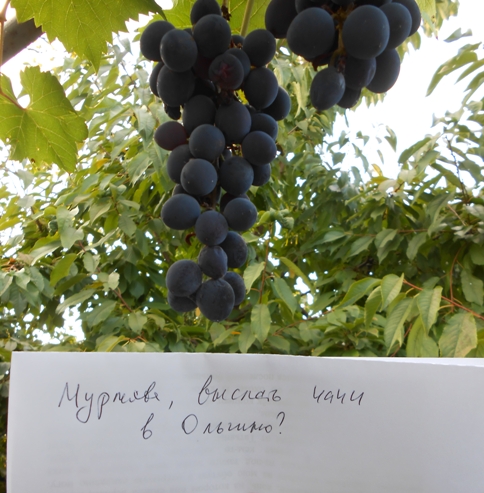 Муркяве, выслать чачи
в Ольгино?